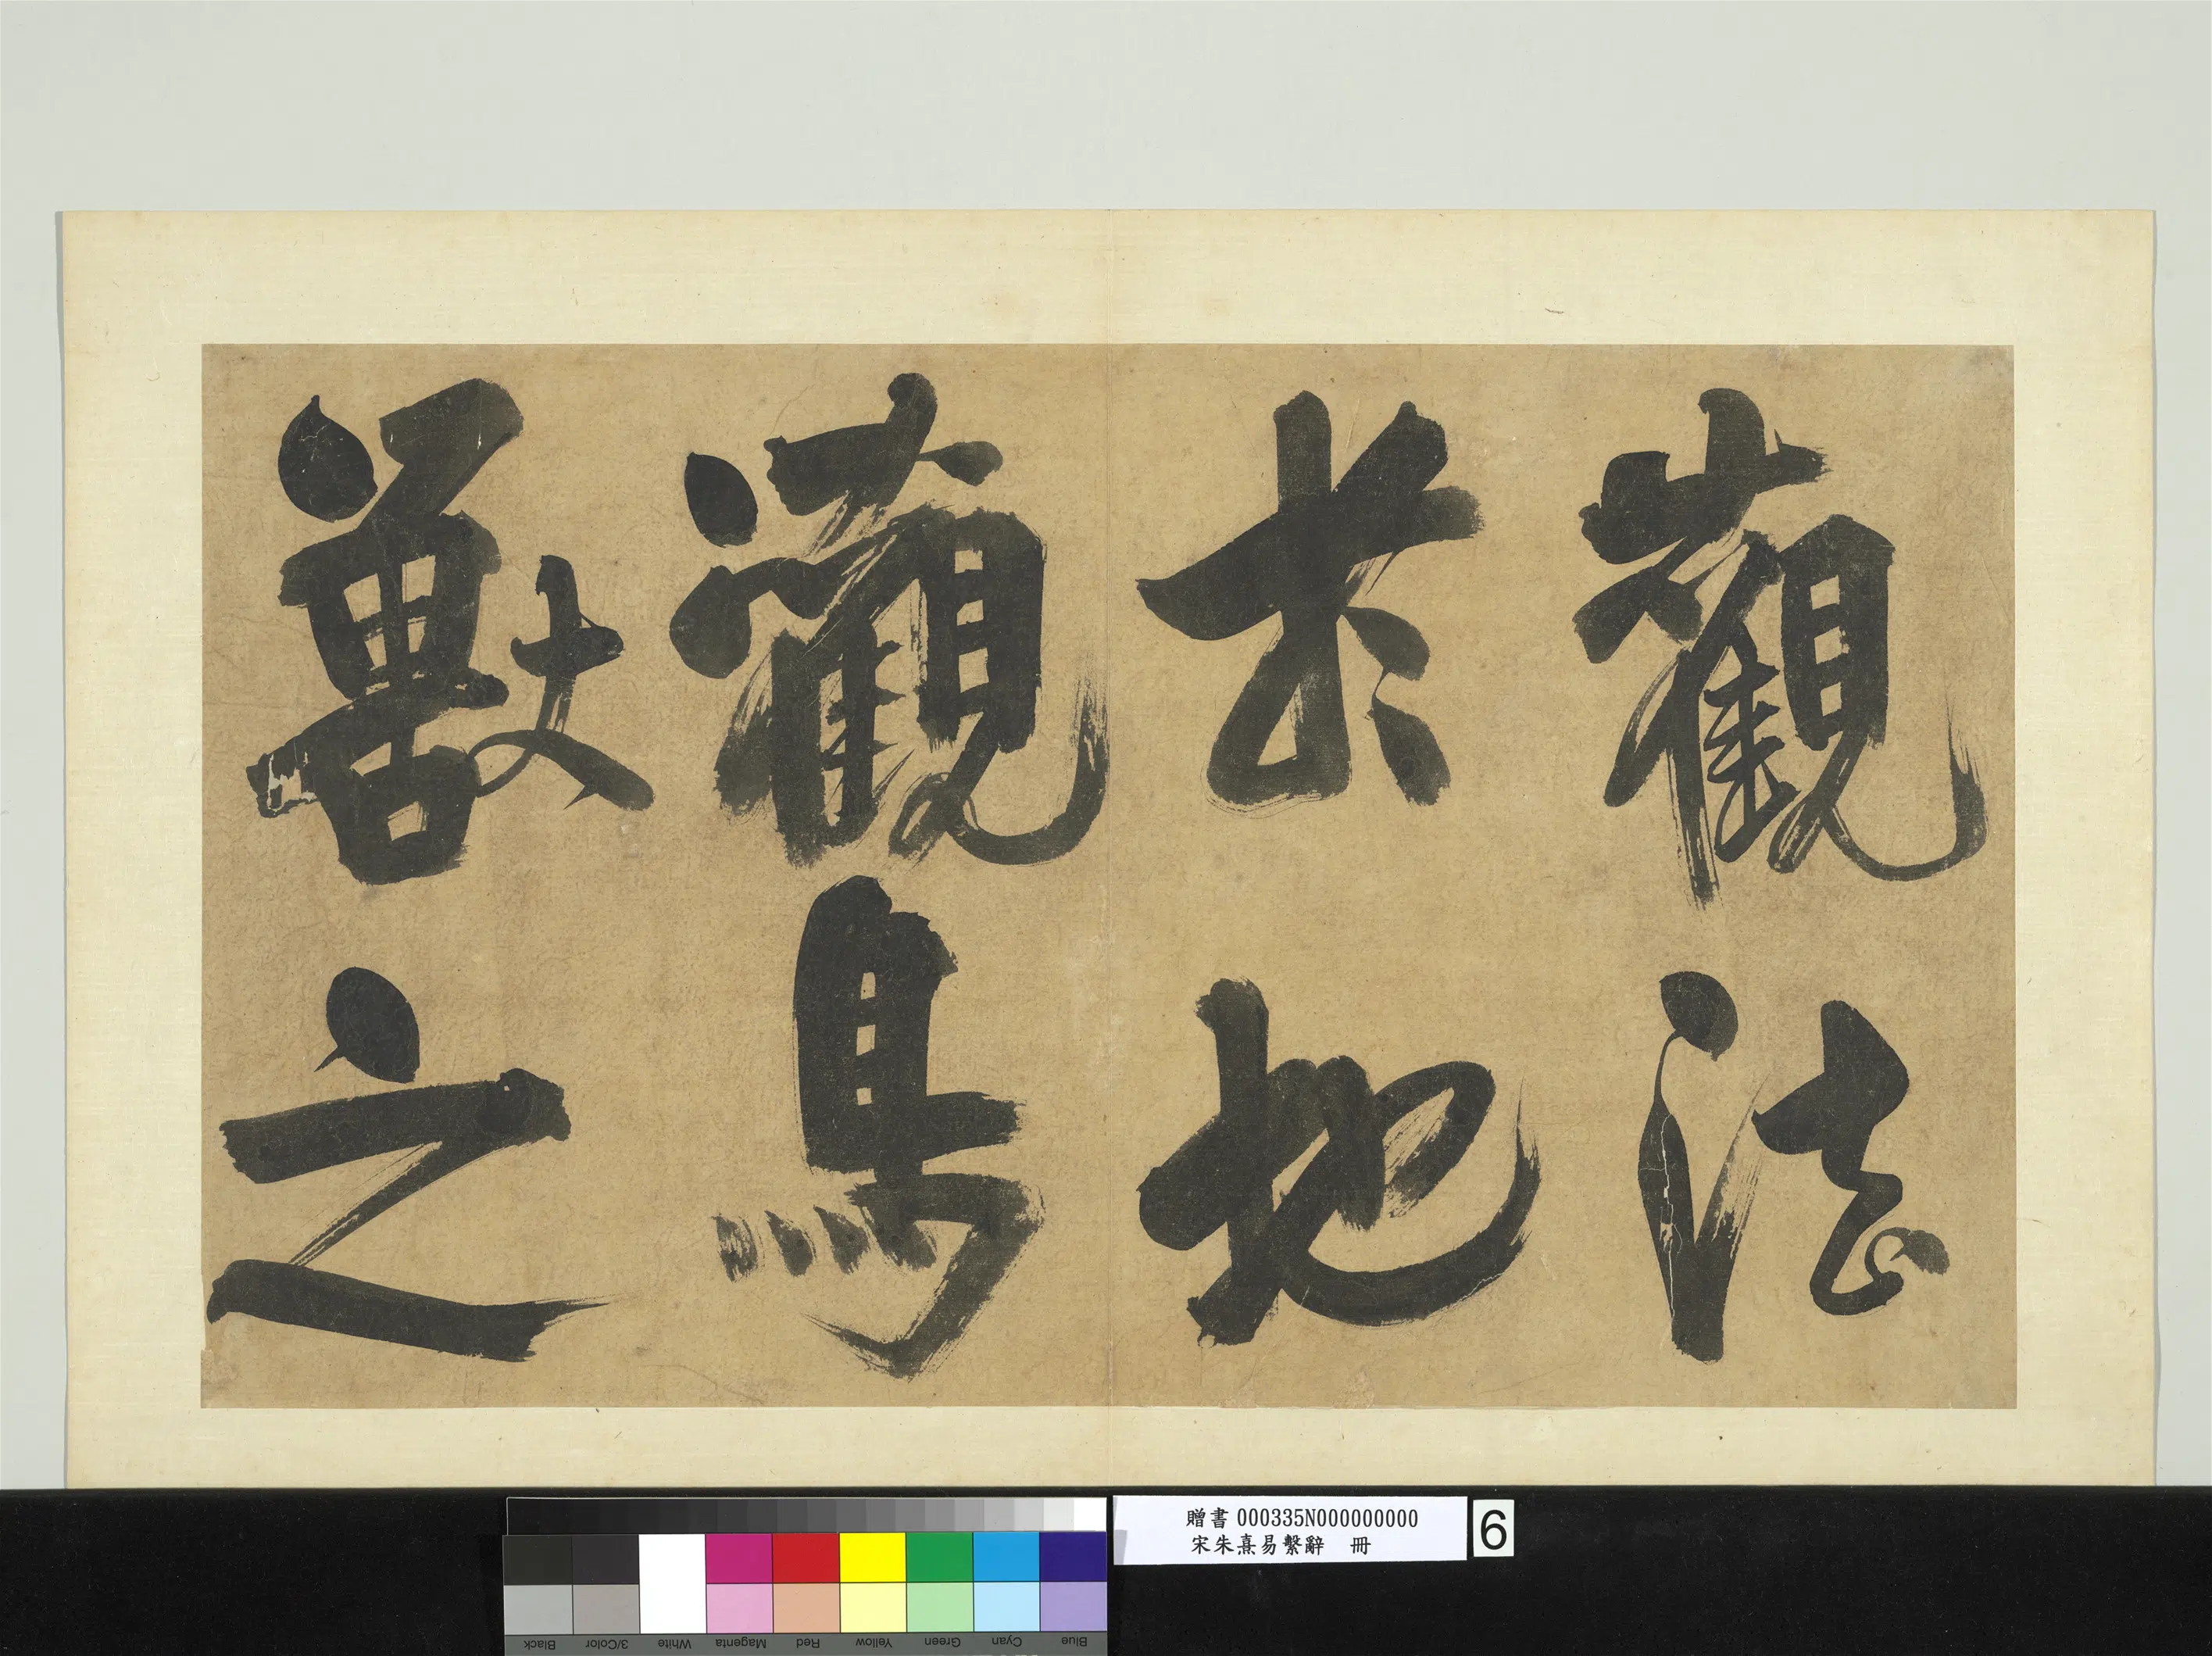 觀法
扵地
觀鳥
獸之
贈書 000335N000000000
宋朱熹易繫辭　冊
6
Blue Cyan Green Yellow Red Magenta White 3/Color Black